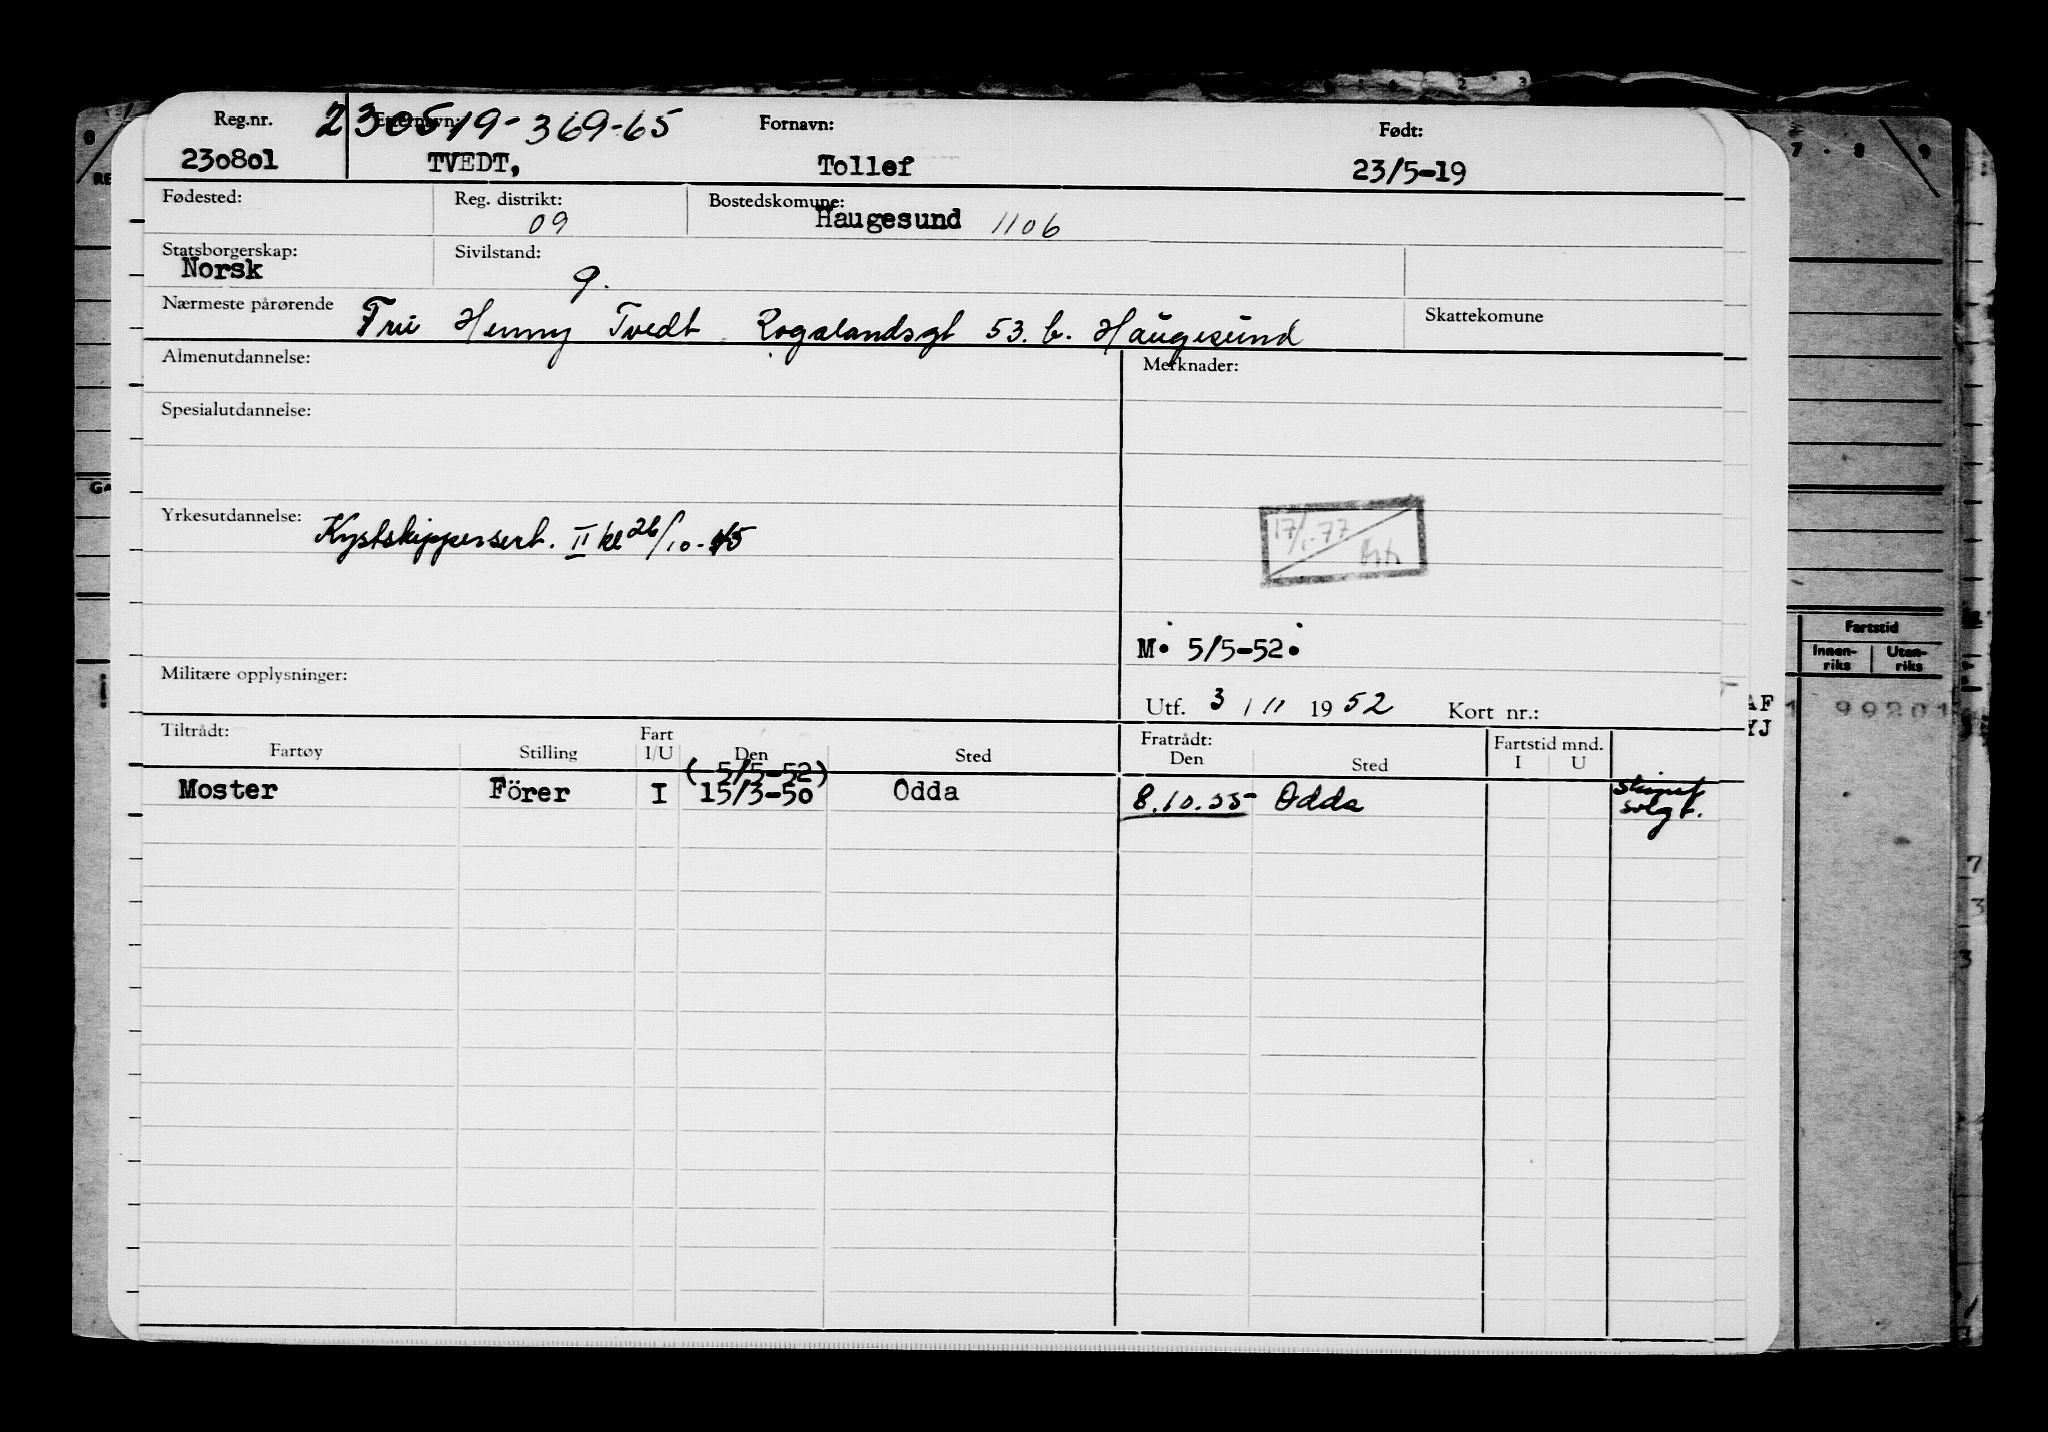 Reg.nr. 230519-369-65 Etternavn: Fornavn: Født:
230801 TVEDT, Tollef 23/5-19
Fødested: Reg. distrikt: 09 Bostedskomune: Haugesund 1106
Statsborgerskap: Norsk Sivilstand: g.
Nærmeste pårørende Fru Henny Tvedt, Rogalandsgt 53.b. Haugesund Skattekomune
Almenutdannelse: Merknader:
Spesialutdannelse:
Yrkesutdannelse: Kystskippersert. II kl 26/10-45
17/1-77
M. 5/5-52.
Militære opplysninger:
Utf. 3 / 11 1952 Kort nr.:
Tiltrådt: Fratrådt: Fartstid mnd.
Fartøy Stilling Fart I/U Den Sted Den Sted I U
(5/5-52)
Moster Förer I 15/3-50 Odda 8.10.55- Odda Skipet solgt.
Fartstid
Innen-riks Uten-riks
99201
7 . 8 9
AF
YJ